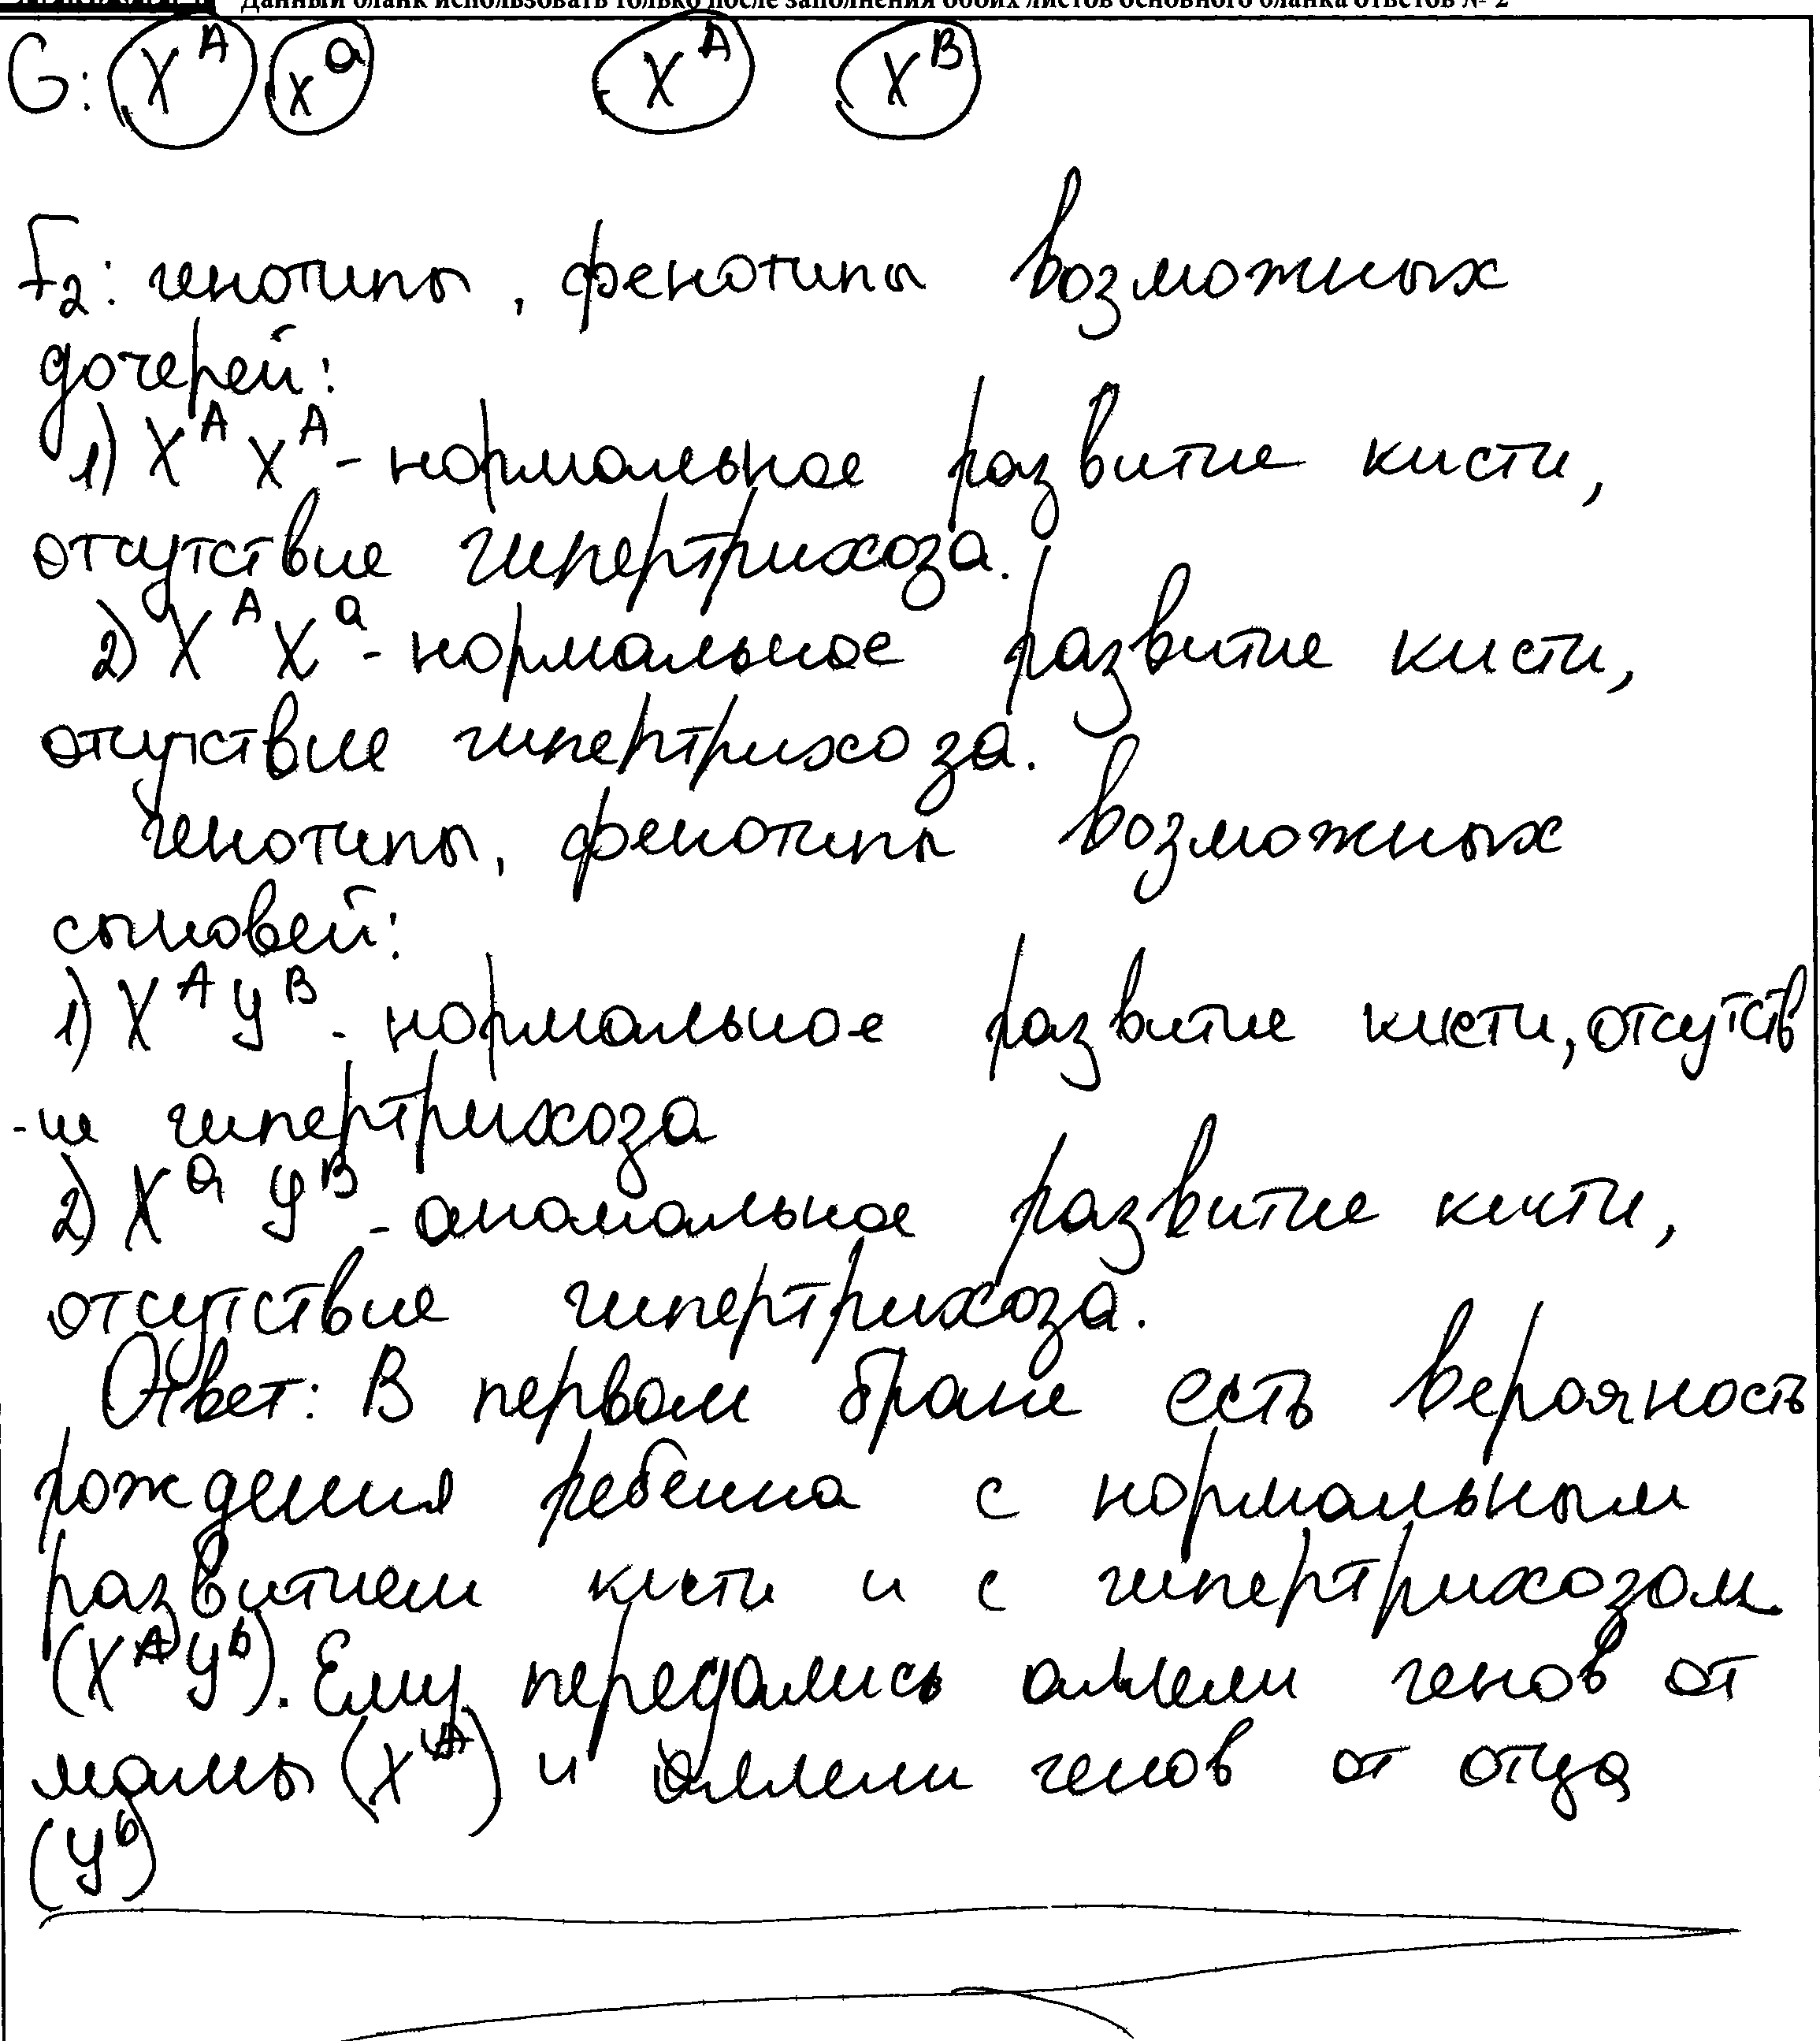 Данный бланк использовать только после заполнения обоих листов основного бланка ответов № 2
G: X^A x^a X^A X^B
F₂: генотипы, фенотипы возможных
дочерей:
1) X^A X^A - нормальное развитие кисти,
отсутствие гипертрихоза.
2) X^A X^a - нормальное развитие кисти,
отсутствие гипертрихоза.
генотипы, фенотипы возможных
сыновей:
1) X^A Y^B - нормальное развитие кисти, отсутств
-ие гипертрихоза
2) X^a Y^B - аномальное развитие кисти,
отсутствие гипертрихоза.
Ответ: В первом браке есть верояность
рождения ребенка с нормальным
развитием кисти и с гипертрихозом
(X^A Y^b). Ему передались аллели генов от
мамы (X^A) и аллели генов от отца
(Y^b)